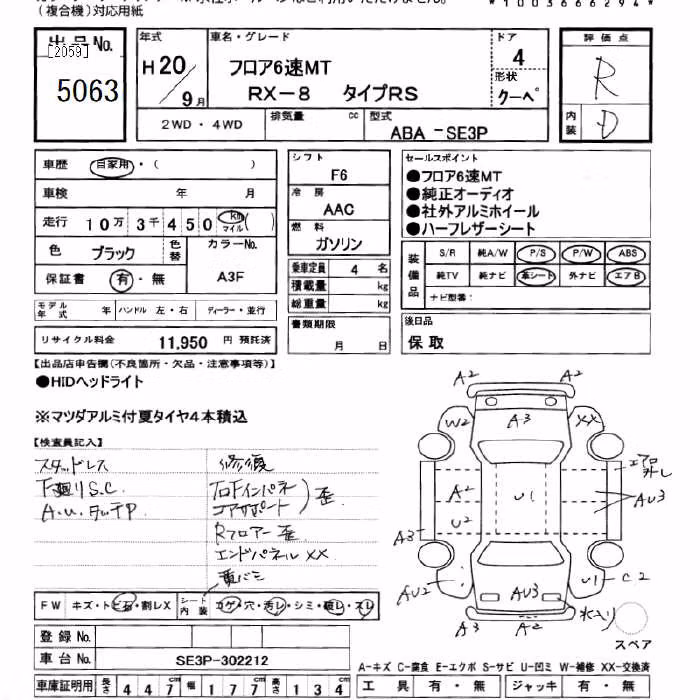 (複合機)対応用紙
*1003666294*
出品No.
[2059]
5063
年式 H20/9月
車名・グレード
フロア6速MT
RX-8 タイプRS
ドア 4
形状 クーペ
評価点
R
内装 D
2WD・4WD
排気量 cc
型式 ABA-SE3P
車歴 自家用・( )
車検 年 月
走行 10万3千450 km マイル( )
色 ブラック 色替 カラーNo. A3F
保証書 有・無
モデル年式 年 ハンドル 左・右 ディーラー・並行
リサイクル料金 11,950 円 預託済
シフト F6
冷房 AAC
燃料 ガソリン
乗車定員 4 名
積載量 kg
総重量 kg
書類期限 月 日
セールスポイント
●フロア6速MT
●純正オーディオ
●社外アルミホイール
●ハーフレザーシート
装備品
S/R 純A/W P/S P/W ABS
純TV 純ナビ 革シート 外ナビ エアB
ナビ型番:
後日品
保取
【出品店申告欄(不良箇所・欠品・注意事項等)】
●HIDヘッドライト
※マツダアルミ付夏タイヤ4本積込
【検査員記入】
スタッドレス
下廻りS.C.
A.U.タッチP
修復
右Fインパネ
コアサポート
歪
Rフロアー歪
エンドパネルXX
A2 A2
W2 A3 XX
エアロ外し
A2 U1 AU3
U2
A3
AU2 AU3 U1 C2
A3 A2 水入り
スペア
FW キズ・トビ石・割レX
シート内装 コゲ・穴・汚レ・シミ・破レ・スレ
登録No.
車台No. SE3P-302212
A-キズ C-腐食 E-エクボ S-サビ U-凹ミ W-補修 XX-交換済
車庫証明用 長さ 447cm 幅 177cm 高さ 134cm
工具 有・無 ジャッキ 有・無